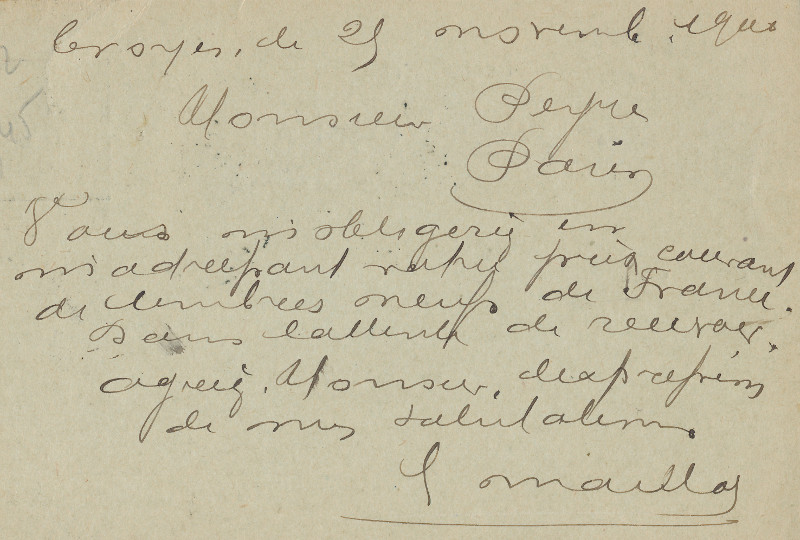 Troyes, le 25 novembre 1900
Monsieur Peyre
Paris
Vous m'obligeriez en
m'adressant votre prix courant
de timbres neufs de France.
Dans l'attente de recevoir,
agréez, Monsieur, l'expression
de mes salutations